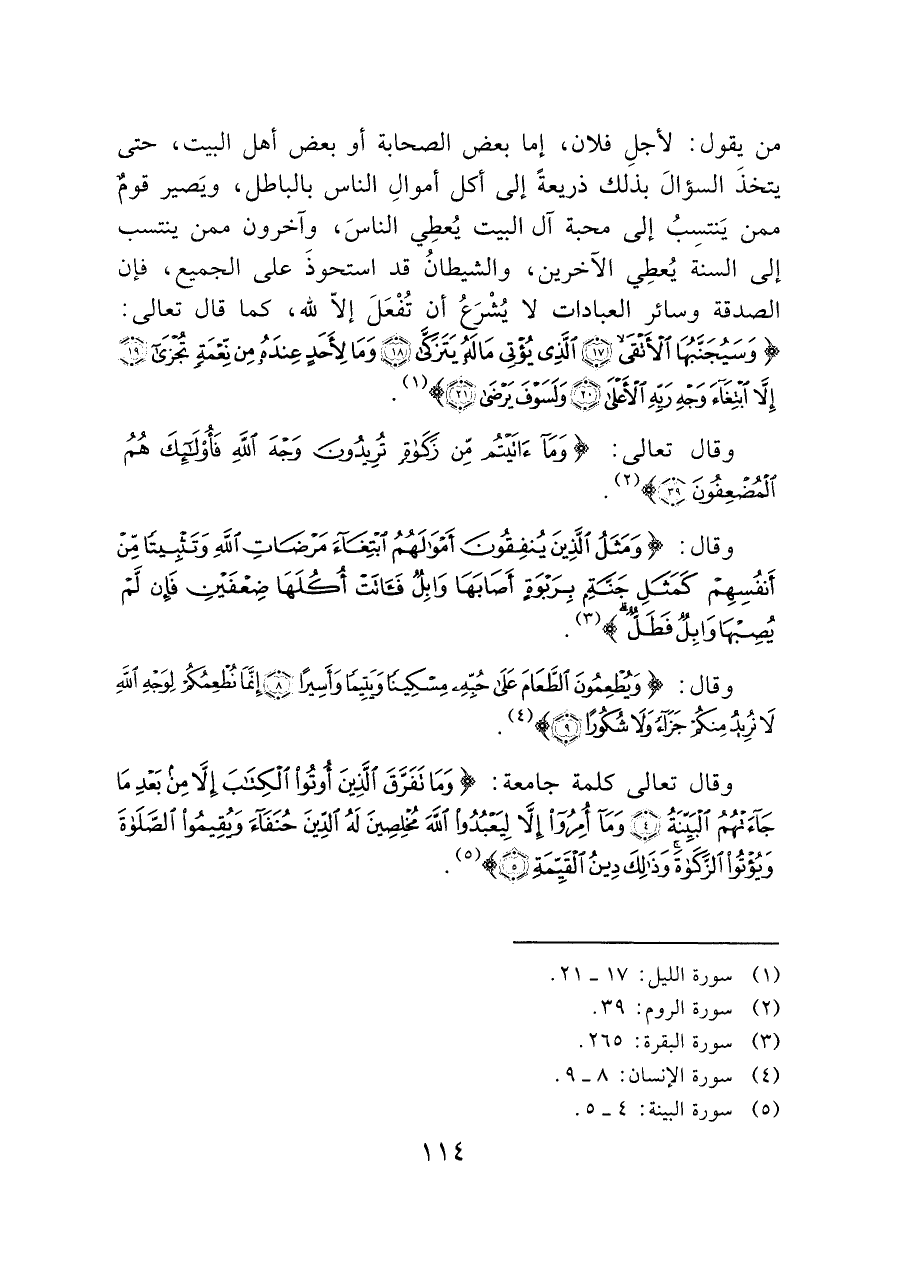 من يقول: لأجلِ فلان، إما بعض الصحابة أو بعض أهل البيت، حتى
يتخذَ السؤالَ بذلك ذريعةً إلى أكل أموالِ الناس بالباطل، ويَصير قومٌ
ممن يَنتسِبُ إلى محبة آل البيت يُعطِي الناسَ، وآخرون ممن ينتسب
إلى السنة يُعطِي الآخرين، والشيطانُ قد استحوذَ على الجميع، فإن
الصدقة وسائر العبادات لا يُشْرَعُ أن تُفْعَلَ إلاّ لله، كما قال تعالى:
﴿ وَسَيُجَنَّبُهَا ٱلْأَتْقَى ۝١٧ ٱلَّذِى يُؤْتِى مَالَهُۥ يَتَزَكَّىٰ ۝١٨ وَمَا لِأَحَدٍ عِندَهُۥ مِن نِّعْمَةٍ تُجْزَىٰٓ ۝١٩
إِلَّا ٱبْتِغَآءَ وَجْهِ رَبِّهِ ٱلْأَعْلَىٰ ۝٢٠ وَلَسَوْفَ يَرْضَىٰ ۝٢١ ﴾(١).
وقال تعالى: ﴿ وَمَآ ءَاتَيْتُم مِّن زَكَوٰةٍ تُرِيدُونَ وَجْهَ ٱللَّهِ فَأُو۟لَٰٓئِكَ هُمُ
ٱلْمُضْعِفُونَ ۝٣٩ ﴾(٢).
وقال: ﴿ وَمَثَلُ ٱلَّذِينَ يُنفِقُونَ أَمْوَٰلَهُمُ ٱبْتِغَآءَ مَرْضَاتِ ٱللَّهِ وَتَثْبِيتًا مِّنْ
أَنفُسِهِمْ كَمَثَلِ جَنَّةٍۭ بِرَبْوَةٍ أَصَابَهَا وَابِلٌ فَـَٔاتَتْ أُكُلَهَا ضِعْفَيْنِ فَإِن لَّمْ
يُصِبْهَا وَابِلٌ فَطَلٌّۗ ﴾(٣).
وقال: ﴿ وَيُطْعِمُونَ ٱلطَّعَامَ عَلَىٰ حُبِّهِۦ مِسْكِينًا وَيَتِيمًا وَأَسِيرًا ۝٨ إِنَّمَا نُطْعِمُكُمْ لِوَجْهِ ٱللَّهِ
لَا نُرِيدُ مِنكُمْ جَزَآءً وَلَا شُكُورًا ۝٩ ﴾(٤).
وقال تعالى كلمة جامعة: ﴿ وَمَا تَفَرَّقَ ٱلَّذِينَ أُوتُوا۟ ٱلْكِتَٰبَ إِلَّا مِنۢ بَعْدِ مَا
جَآءَتْهُمُ ٱلْبَيِّنَةُ ۝٤ وَمَآ أُمِرُوٓا۟ إِلَّا لِيَعْبُدُوا۟ ٱللَّهَ مُخْلِصِينَ لَهُ ٱلدِّينَ حُنَفَآءَ وَيُقِيمُوا۟ ٱلصَّلَوٰةَ
وَيُؤْتُوا۟ ٱلزَّكَوٰةَۚ وَذَٰلِكَ دِينُ ٱلْقَيِّمَةِ ۝٥ ﴾(٥).
(١) سورة الليل: ١٧ ـ ٢١.
(٢) سورة الروم: ٣٩.
(٣) سورة البقرة: ٢٦٥.
(٤) سورة الإنسان: ٨ ـ ٩.
(٥) سورة البينة: ٤ ـ ٥.
١١٤